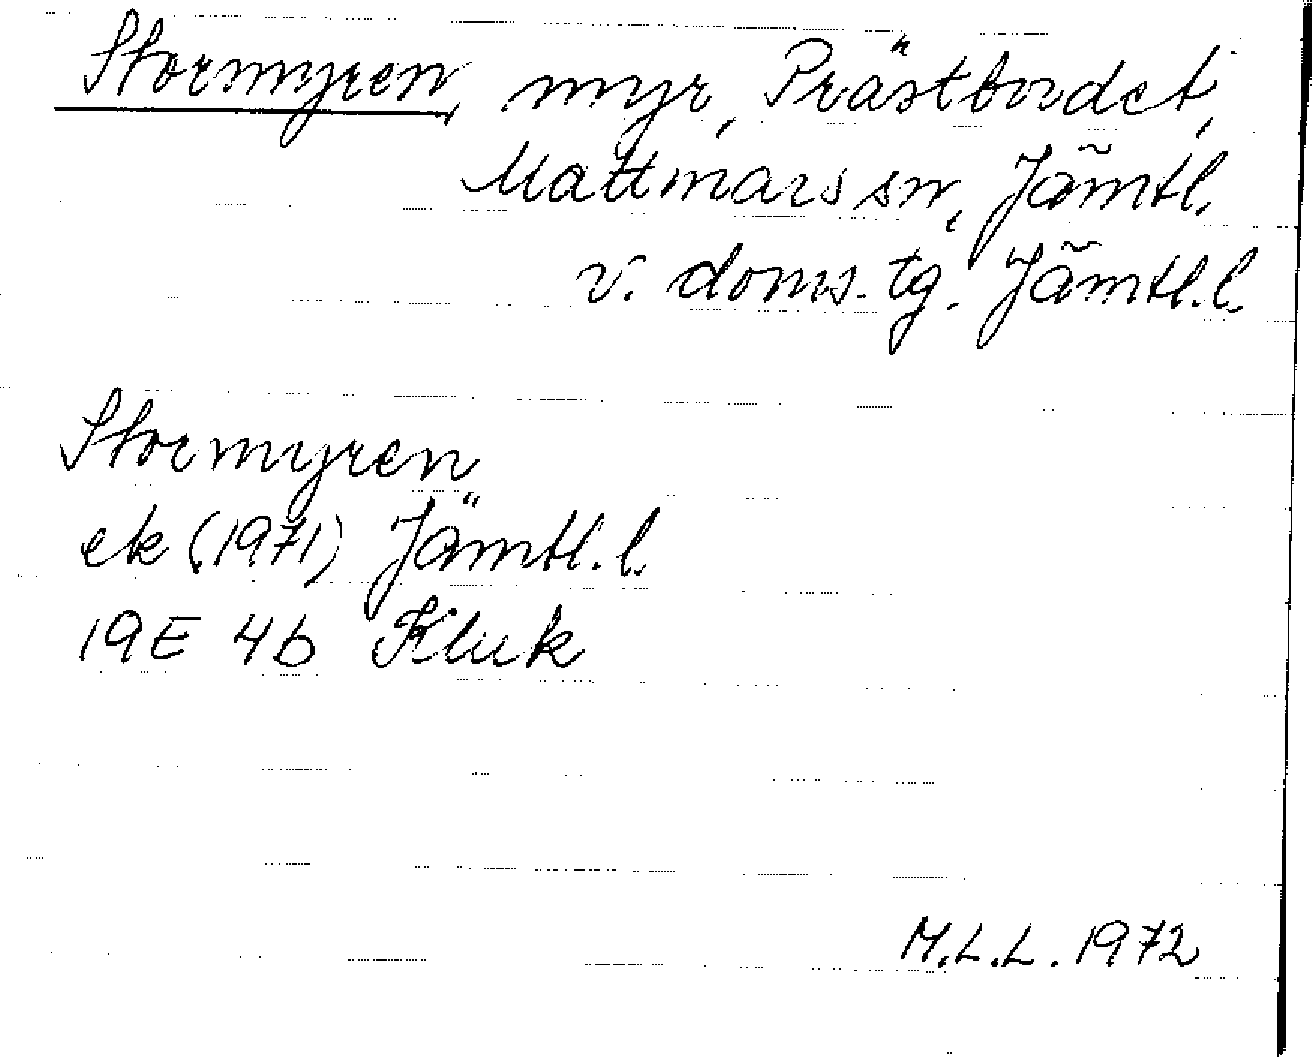 Stormyren, myr, Prästbordet,
Mattmars sn, Jämtl.
v. doms. tg. Jämtl. l.
Stormyren
ek (1971) Jämtl. l.
19E 4b Kluk
M.L.L. 1972